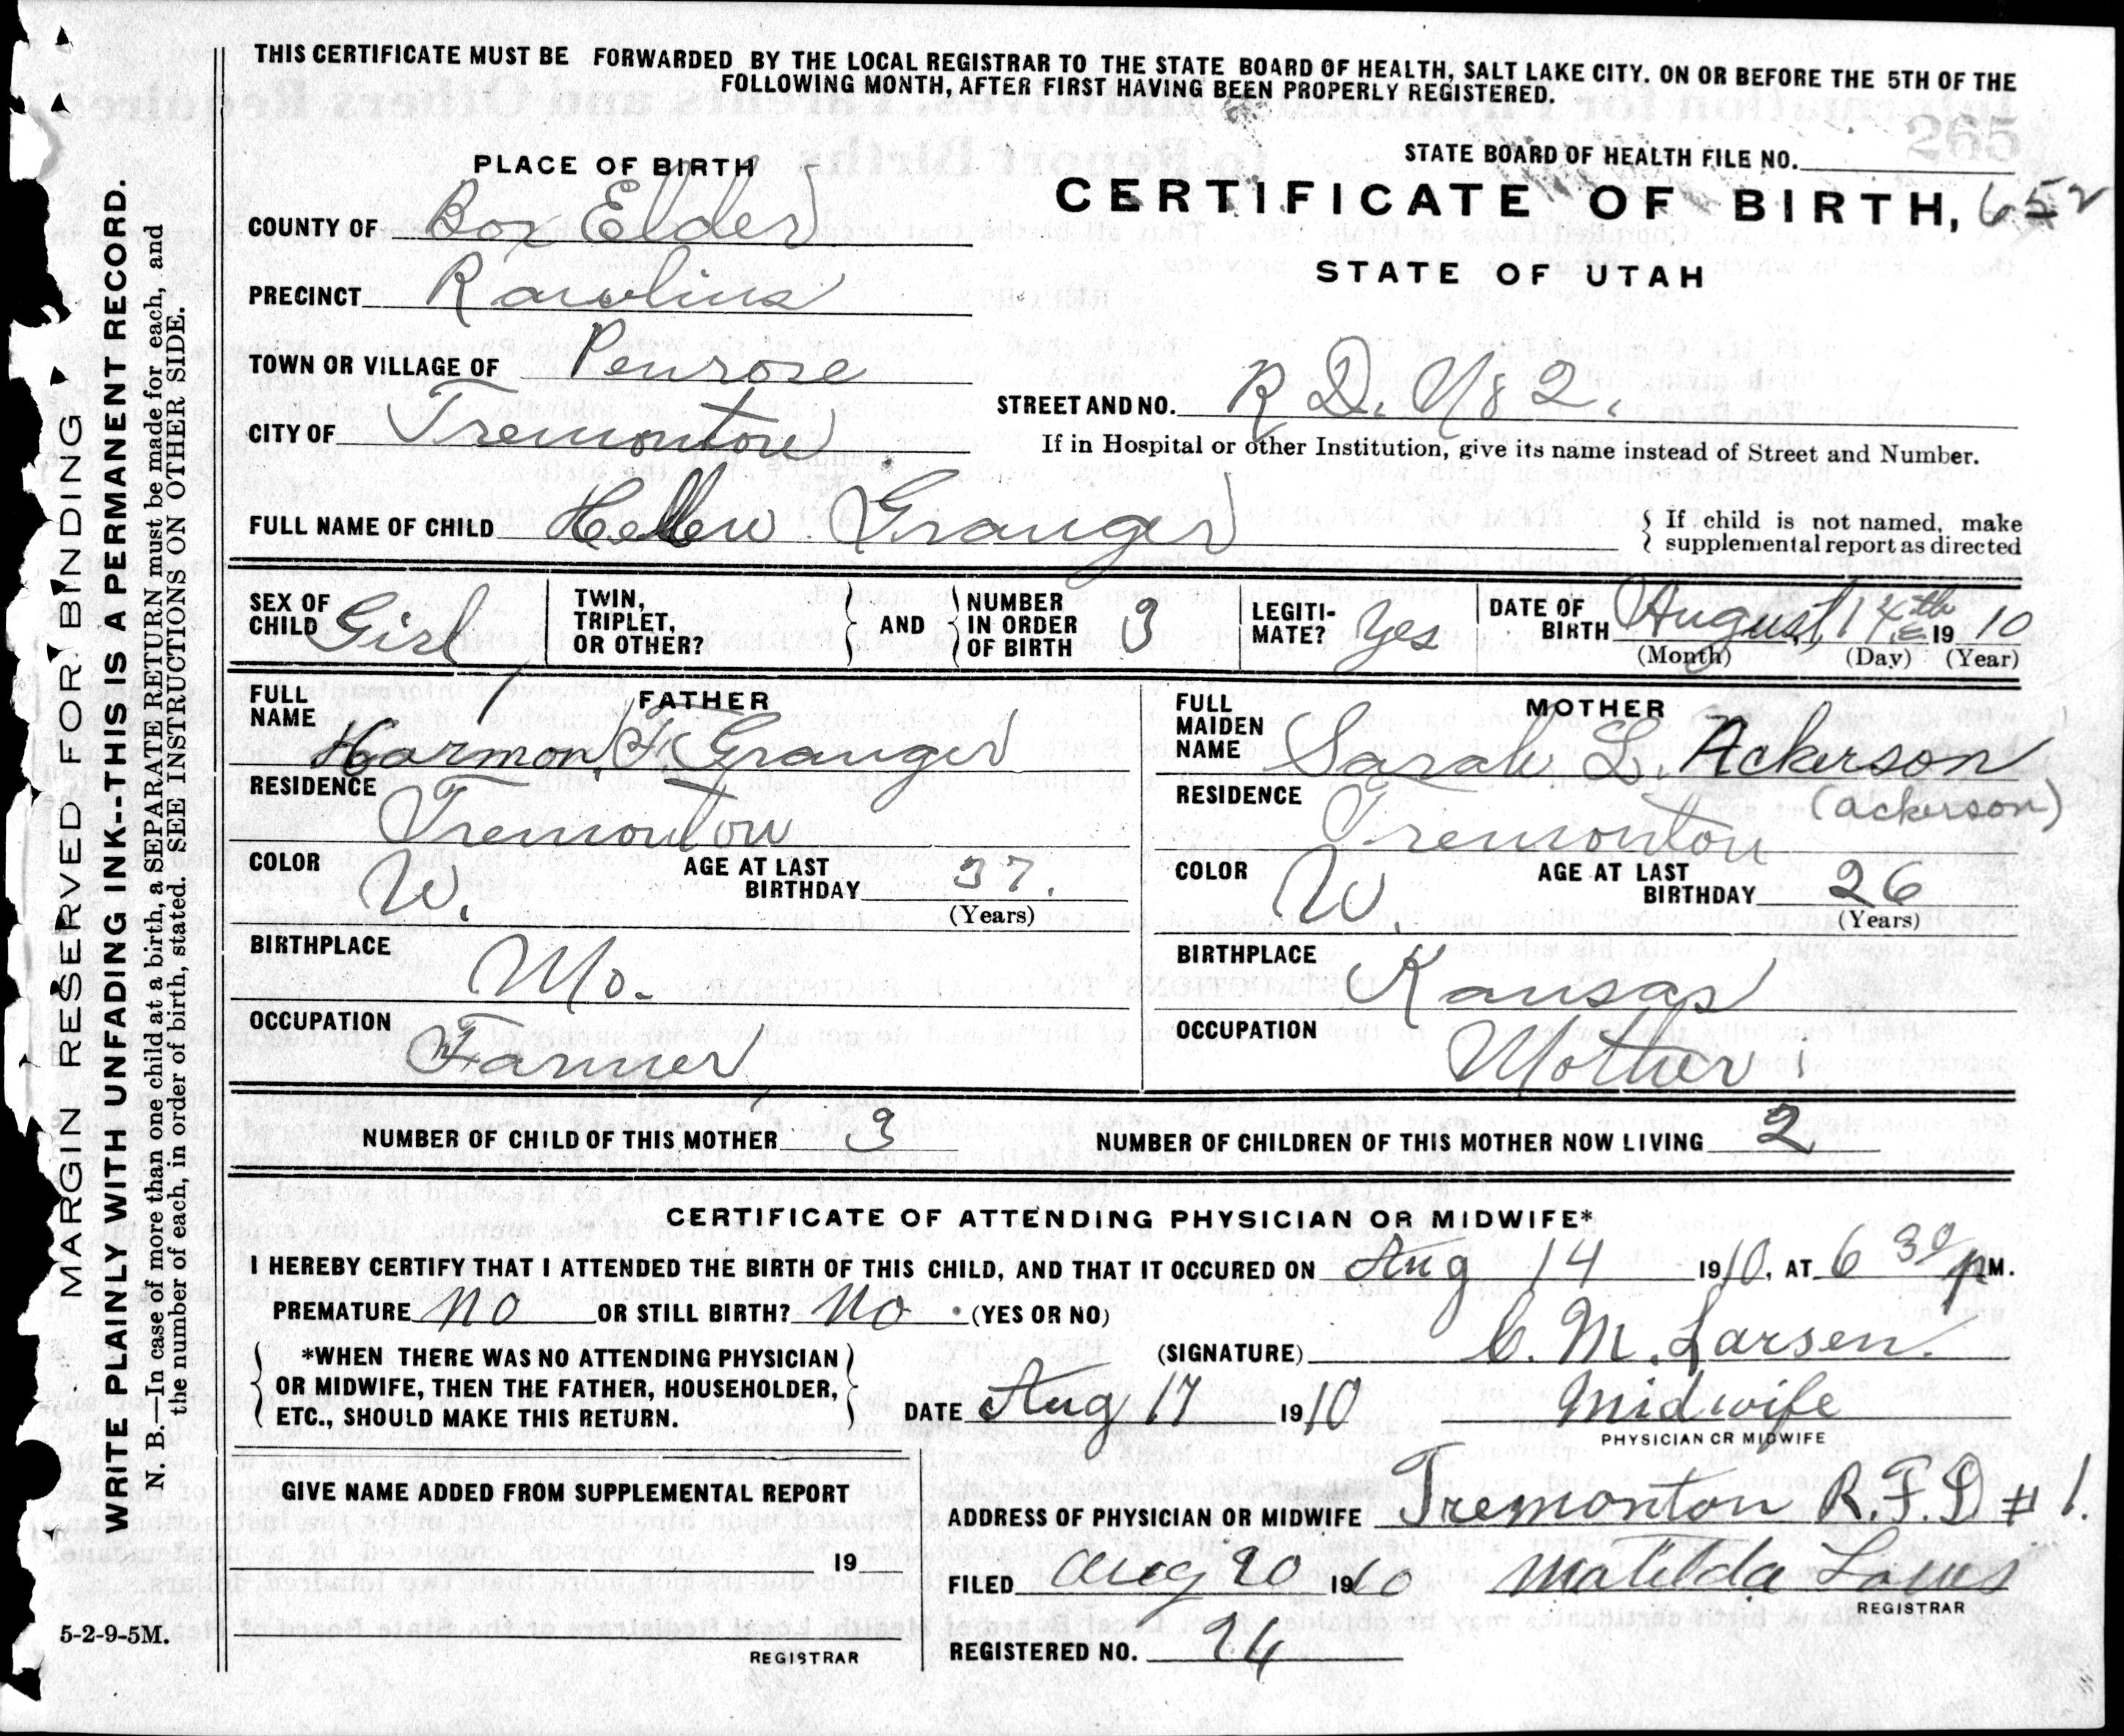 THIS CERTIFICATE MUST BE FORWARDED BY THE LOCAL REGISTRAR TO THE STATE BOARD OF HEALTH, SALT LAKE CITY. ON OR BEFORE THE 5TH OF THE
FOLLOWING MONTH, AFTER FIRST HAVING BEEN PROPERLY REGISTERED.
265
PLACE OF BIRTH
STATE BOARD OF HEALTH FILE NO.
CERTIFICATE OF BIRTH, 652
STATE OF UTAH
COUNTY OF Box Elder
PRECINCT
TOWN OR VILLAGE OF Penrose
STREET AND NO. R D. No 2.
CITY OF Tremonton
If in Hospital or other Institution, give its name instead of Street and Number.
FULL NAME OF CHILD Hellen Granger
If child is not named, make
supplemental report as directed
SEX OF CHILD Girl
TWIN, TRIPLET, OR OTHER?
AND
NUMBER IN ORDER OF BIRTH 3
LEGITI-MATE? Yes
DATE OF BIRTH August 14th 1910
(Month) (Day) (Year)
FATHER
FULL NAME Harmon Granger
RESIDENCE Tremonton
COLOR W. AGE AT LAST BIRTHDAY 37.
(Years)
BIRTHPLACE Mo.
OCCUPATION Farmer
MOTHER
FULL MAIDEN NAME Sarah L. Ackerson
(ackerson)
RESIDENCE Tremonton
COLOR W. AGE AT LAST BIRTHDAY 26
(Years)
BIRTHPLACE Kansas
OCCUPATION Mother
NUMBER OF CHILD OF THIS MOTHER 3 NUMBER OF CHILDREN OF THIS MOTHER NOW LIVING 2
CERTIFICATE OF ATTENDING PHYSICIAN OR MIDWIFE*
I HEREBY CERTIFY THAT I ATTENDED THE BIRTH OF THIS CHILD, AND THAT IT OCCURED ON Aug 14 1910, AT 6 30 P M.
PREMATURE no OR STILL BIRTH? no (YES OR NO)
*WHEN THERE WAS NO ATTENDING PHYSICIAN
OR MIDWIFE, THEN THE FATHER, HOUSEHOLDER,
ETC., SHOULD MAKE THIS RETURN.
(SIGNATURE) C. M. Larsen.
DATE Aug 17 1910 Midwife
PHYSICIAN OR MIDWIFE
GIVE NAME ADDED FROM SUPPLEMENTAL REPORT
19
REGISTRAR
ADDRESS OF PHYSICIAN OR MIDWIFE Tremonton R.F.D # 1.
FILED Aug 20 1910 Matilda
REGISTRAR
REGISTERED NO.
5-2-9-5M.
MARGIN RESERVED FOR BINDING
WRITE PLAINLY WITH UNFADING INK--THIS IS A PERMANENT RECORD.
N. B.—In case of more than one child at a birth, a SEPARATE RETURN must be made for each, and
the number of each, in order of birth, stated. SEE INSTRUCTIONS ON OTHER SIDE.